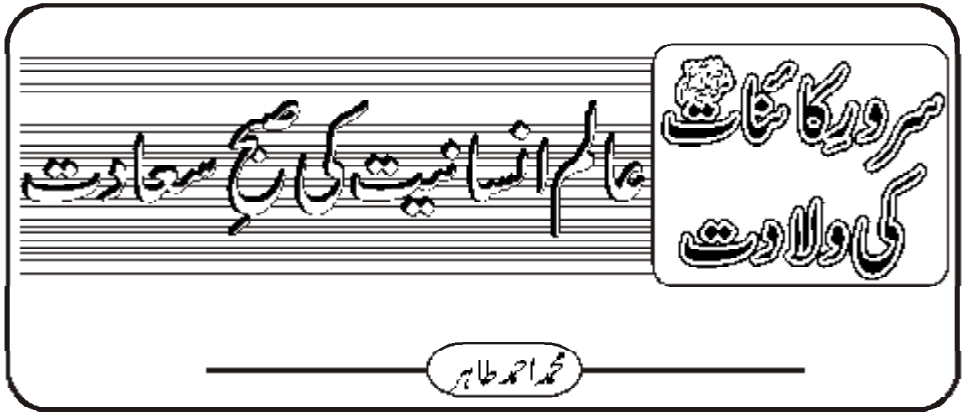 سرورِ کائنات ﷺ
کی ولادت
عالم انسانیت کی صبحِ سعادت
محمد احمد طاہر